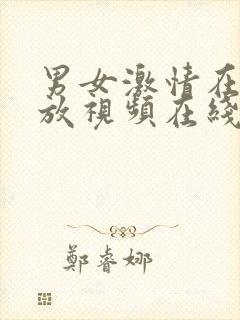 男女激情在
放視頻在綫
鄭睿娜